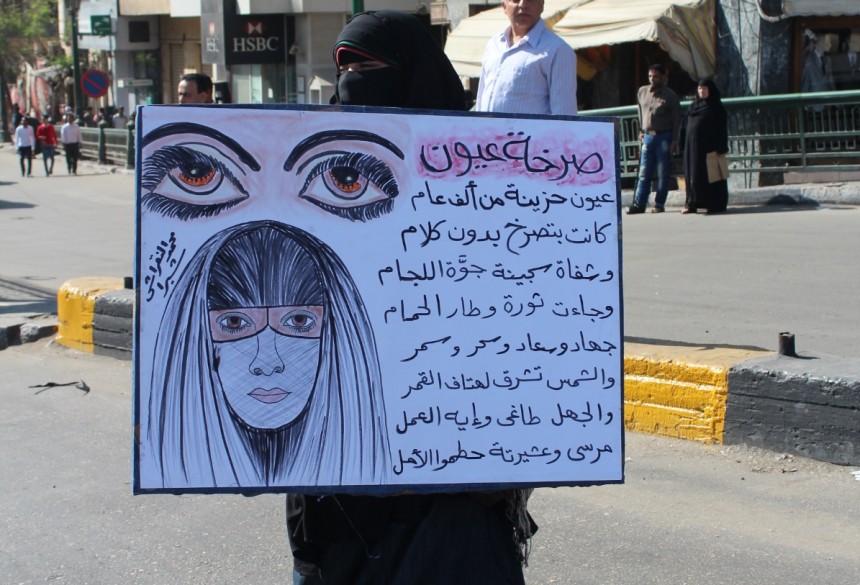 HSBC
صرخة عيون
عيون حزينة من ألف عام
كانت بتصرخ بدون كلام
وشفاة سجينة جوَّة اللجام
وجاءت ثورة وطار الحمام
جهاد وسعاد وسحر وسمر
والشمس تشرق لهتاف القمر
والجهل طاغى وإيه العمل
مرسى وعشيرتة حطموا الأمل
محمد النقراشى
شبرا